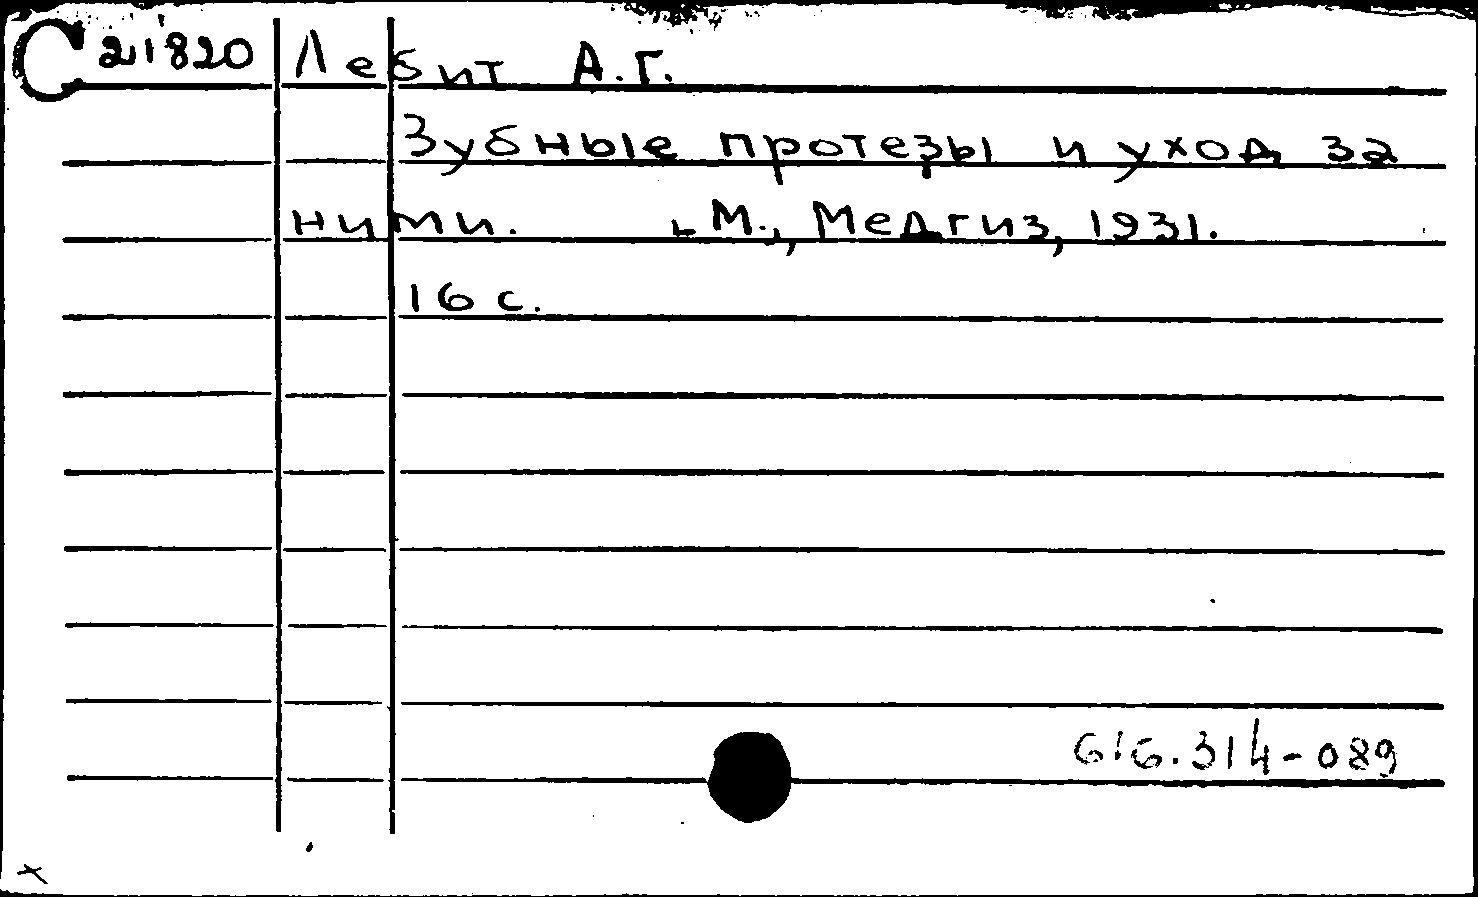 С21820 Лебит А.Г.
Зубные протезы и уход за
ними. М., Медгиз, 1931.
16 с.
616.314-089